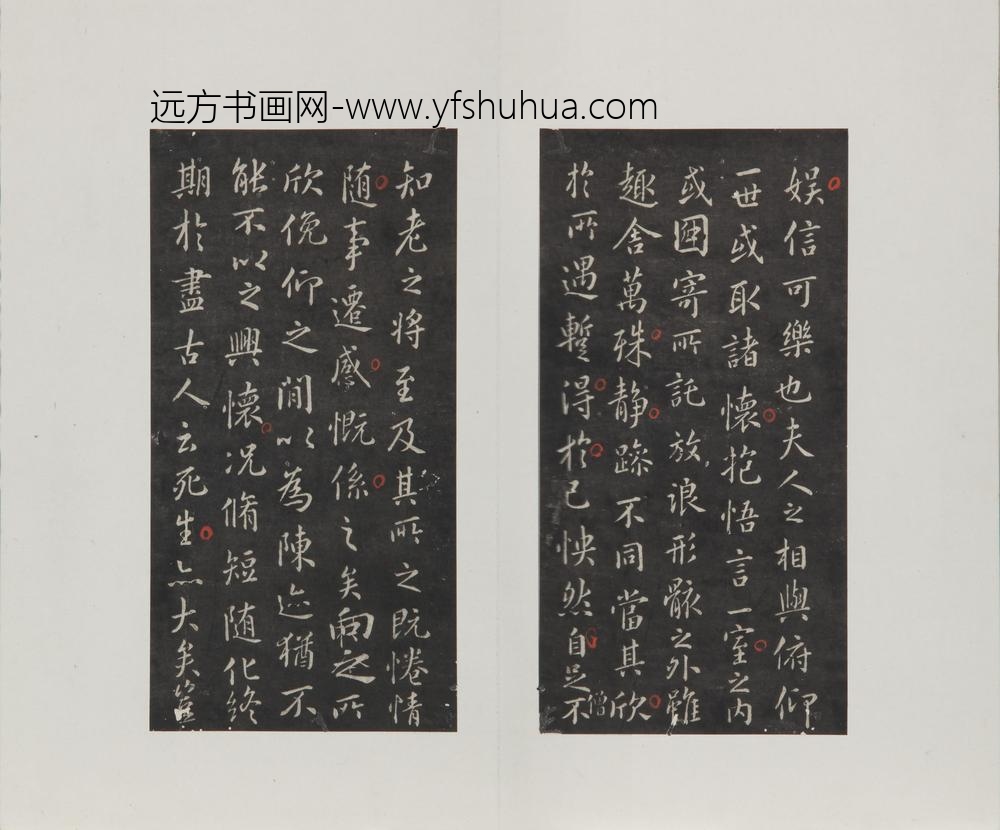 远方书画网-www.yfshuhua.com
娱信可樂也夫人之相與俯仰
一世或取諸懷抱悟言一室之内
或因寄所託放浪形骸之外雖
趣舍萬殊静躁不同當其欣
於所遇蹔得於己怏然自足不
僧
知老之將至及其所之既惓情
随事遷感慨係之矣向之所
欣俛仰之閒以為陳迹猶不
能不以之興懷況脩短随化終
期於盡古人云死生亦大矣豈